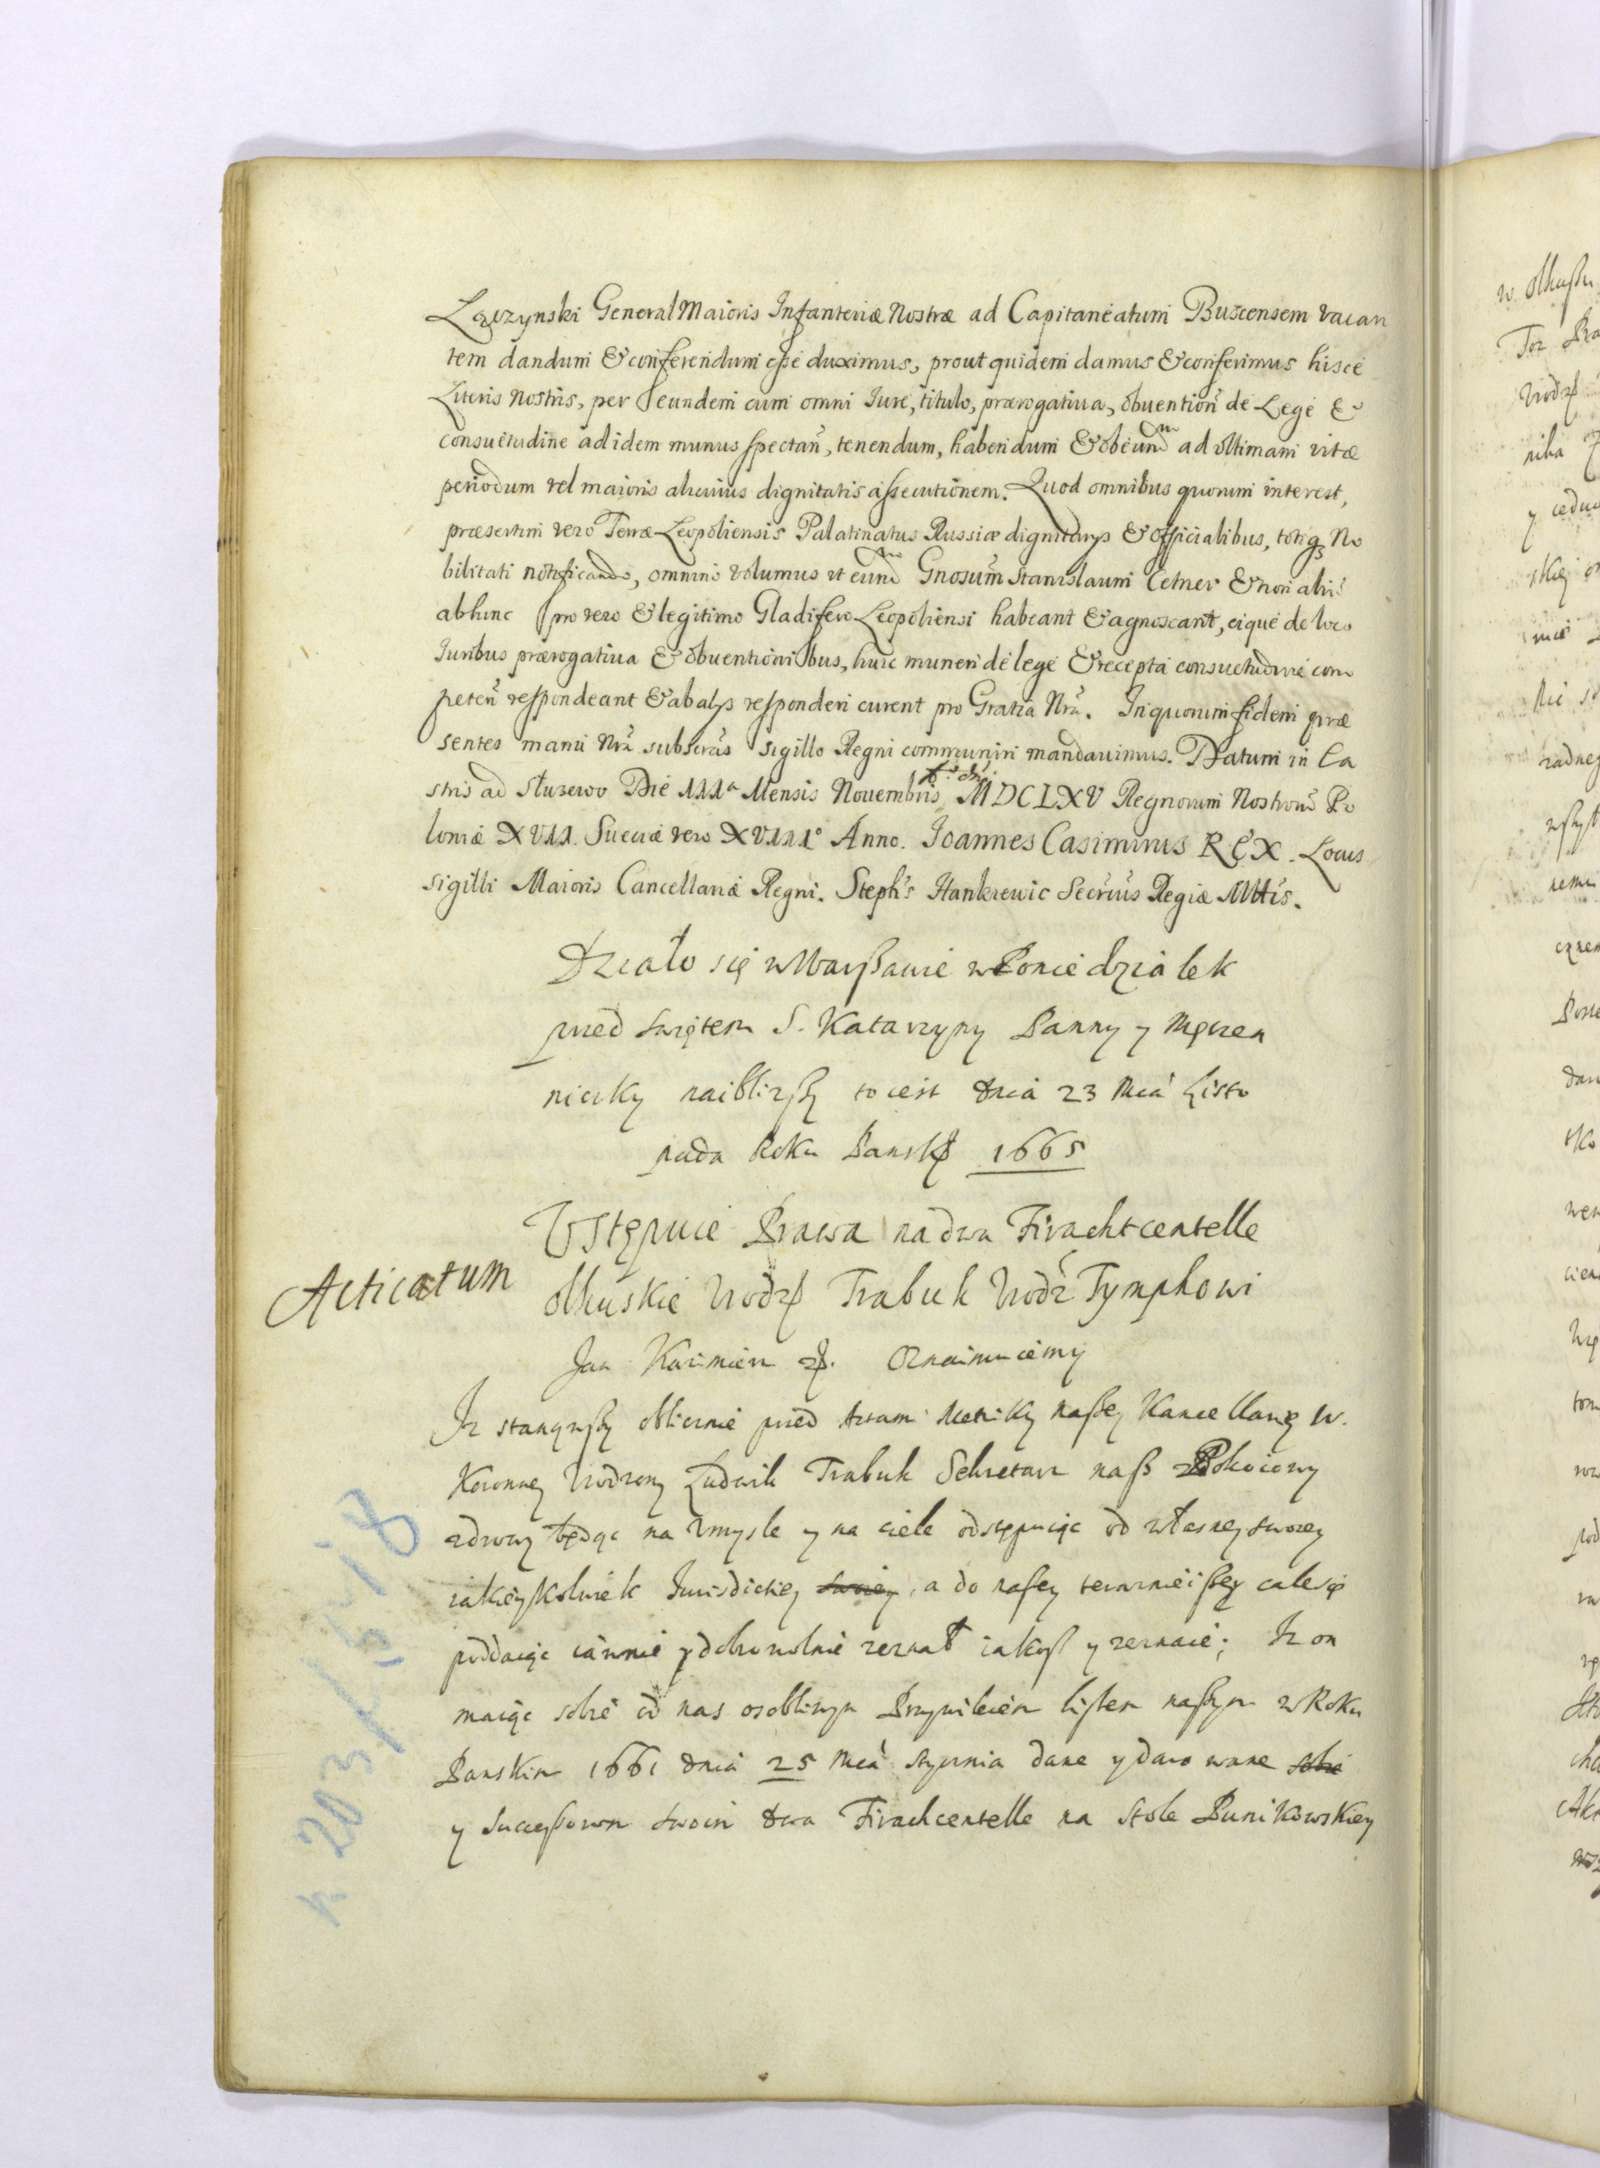 Łączynski General Maioris Infanteriæ Nostræ ad Capitaneatum Buscensem vacan
tem dandum & conferendum esse duximus, prout quidem damus & conferimus hisce
Literis Nostris, per eundem cum omni Iure, titulo, prærogatiua, obuention̄ de Lege &
consuetudine ad idem munus spectan̄, tenendum, habendum & obeund ad vltimam vitæ
periodum vel maioris alicuius dignitatis assecutionem. Quod omnibus quorum interest,
præsertim vero Terræ Leopoliensis Palatinatus Russiæ dignitarys & officialibus, totiq3 No
bilitati notificando, omnino volumus vt eund Gnosum Stanislaum Cetner & non aliū
abhinc pro vero & legitimo Gladifero Leopoliensi habeant & agnoscant, eique de loco
Iuribus prærogatiua & obuentionibus, huic muneri de lege & recepta consuetudine com
peten̄ respondeant & ab alys responderi curent pro Gratia Nrā. In quorum fidem præ
sentes manu Nrā subscrās sigillo Regni communiri mandauimus. Datum in Ca
stris ad Służewo Die IIIa Mensis Nouembris Ao Dni MDCLXV Regnorum Nostrorū Po
loniæ XVII. Sueciæ vero XVIIIo Anno. Ioannes Casimirus REX. Locus
sigilli Maioris Cancellariæ Regni. Stephs Hankiewic Secrius Regiæ Mttis.
Działo się w Warßawie w Poniedziałek
przed swiętem S. Katarzyny Panny y Męczen
niczky naibliższy to iest dnia 23 Mca Listo
pada Roku Pansk 1665
Vstępuie Prawa na dwa Firachtcentelle
Olkuskie Vrodz Trabuk Vrodz Tymphowi
Acticatum
Jan Kazimierz z. Oznaimuiemy
Iz stanąwßy obliczniė przed Aktami Metriky naßey Kancellaryey W.
Koronney Vrodzony Ludwik Trabuk Sekretarz naß Pokoiowy
zdrowy będąc na Vmysle y na ciele odstępuiąc od własney swoiey
iakieykolwiek Iurisdictiey swoiey, a do naßey teraznieißey cale się
poddaiąc iawnie y dobrowolnie zeznał iakoß y zeznaie; Iz on
maiąc sobie od nas osobliwym Przywileiem listem naßym w Roku
Panskim 1661 dnia 25 Mca stycznia dane y darowane sobie
y Sucessorom swoim dwa Firachcentelle na Stole Punikowskiey